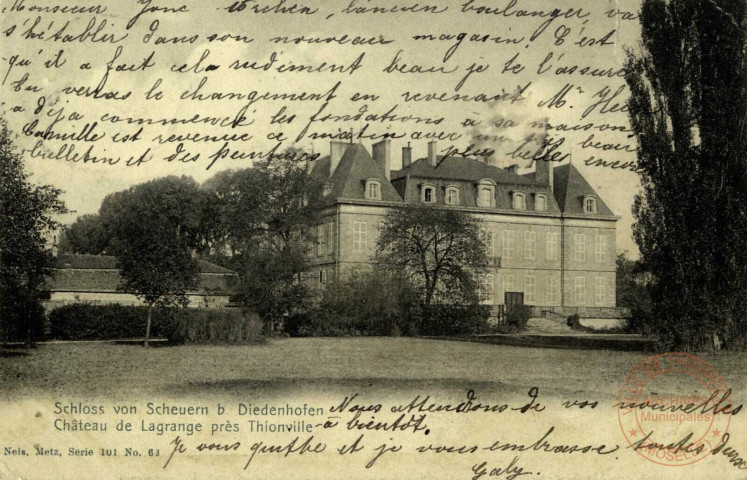 Monsieur l'ancien boulanger, va
s'établir dans son nouveau magasin. C'est
qu'il a fait cela rudement beau je te l'assure
Tu verras le changement en revenant Mr
a déja commencé les fondations a sa maison
Camille est revenue ce matin avec un plus beau
bulletin et des peintures plus belles encore
Schloss von Scheuern b. Diedenhofen
Château de Lagrange près Thionville
Nous attendons de vos nouvelles
a bientôt.
Neis, Metz, Serie 101 No. 63
Je vous quitte et je vous embrasse toutes deux
Gaby.
Archives
Municipales
THIONVILLE MOSELLE